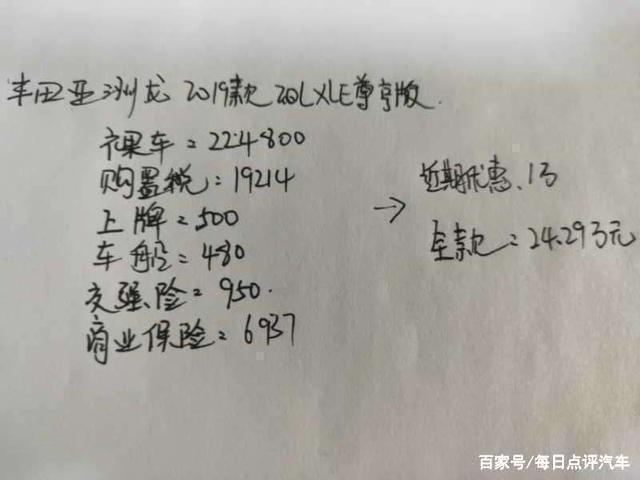 丰田亚洲龙 2019款 2.0L XLE尊享版
裸车：224800
购置税：19214
上牌：500
车船：480
交强险：950.
商业保险：6937
→
近期优惠、1万
全款：24.29万元
百家号/每日点评汽车